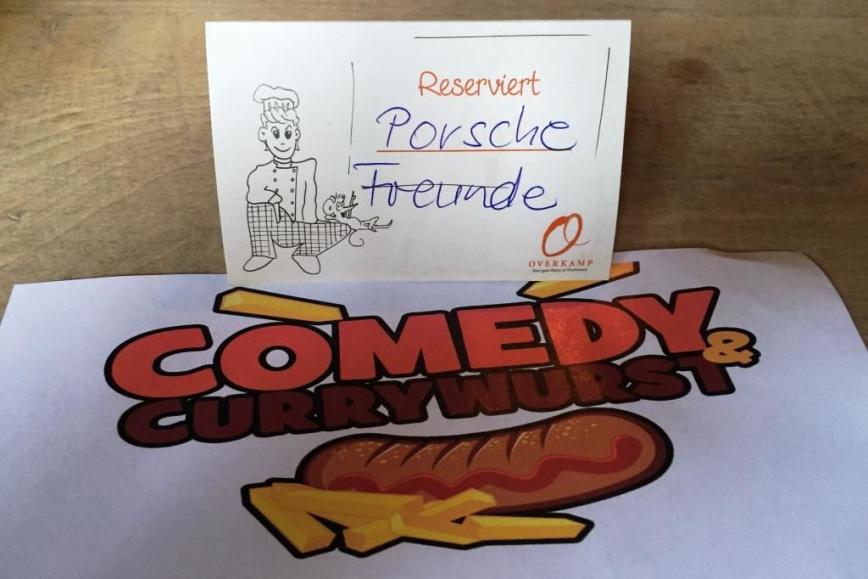 Reserviert
Porsche
Freunde
OVERKAMP
COMEDY
&
CURRYWURST